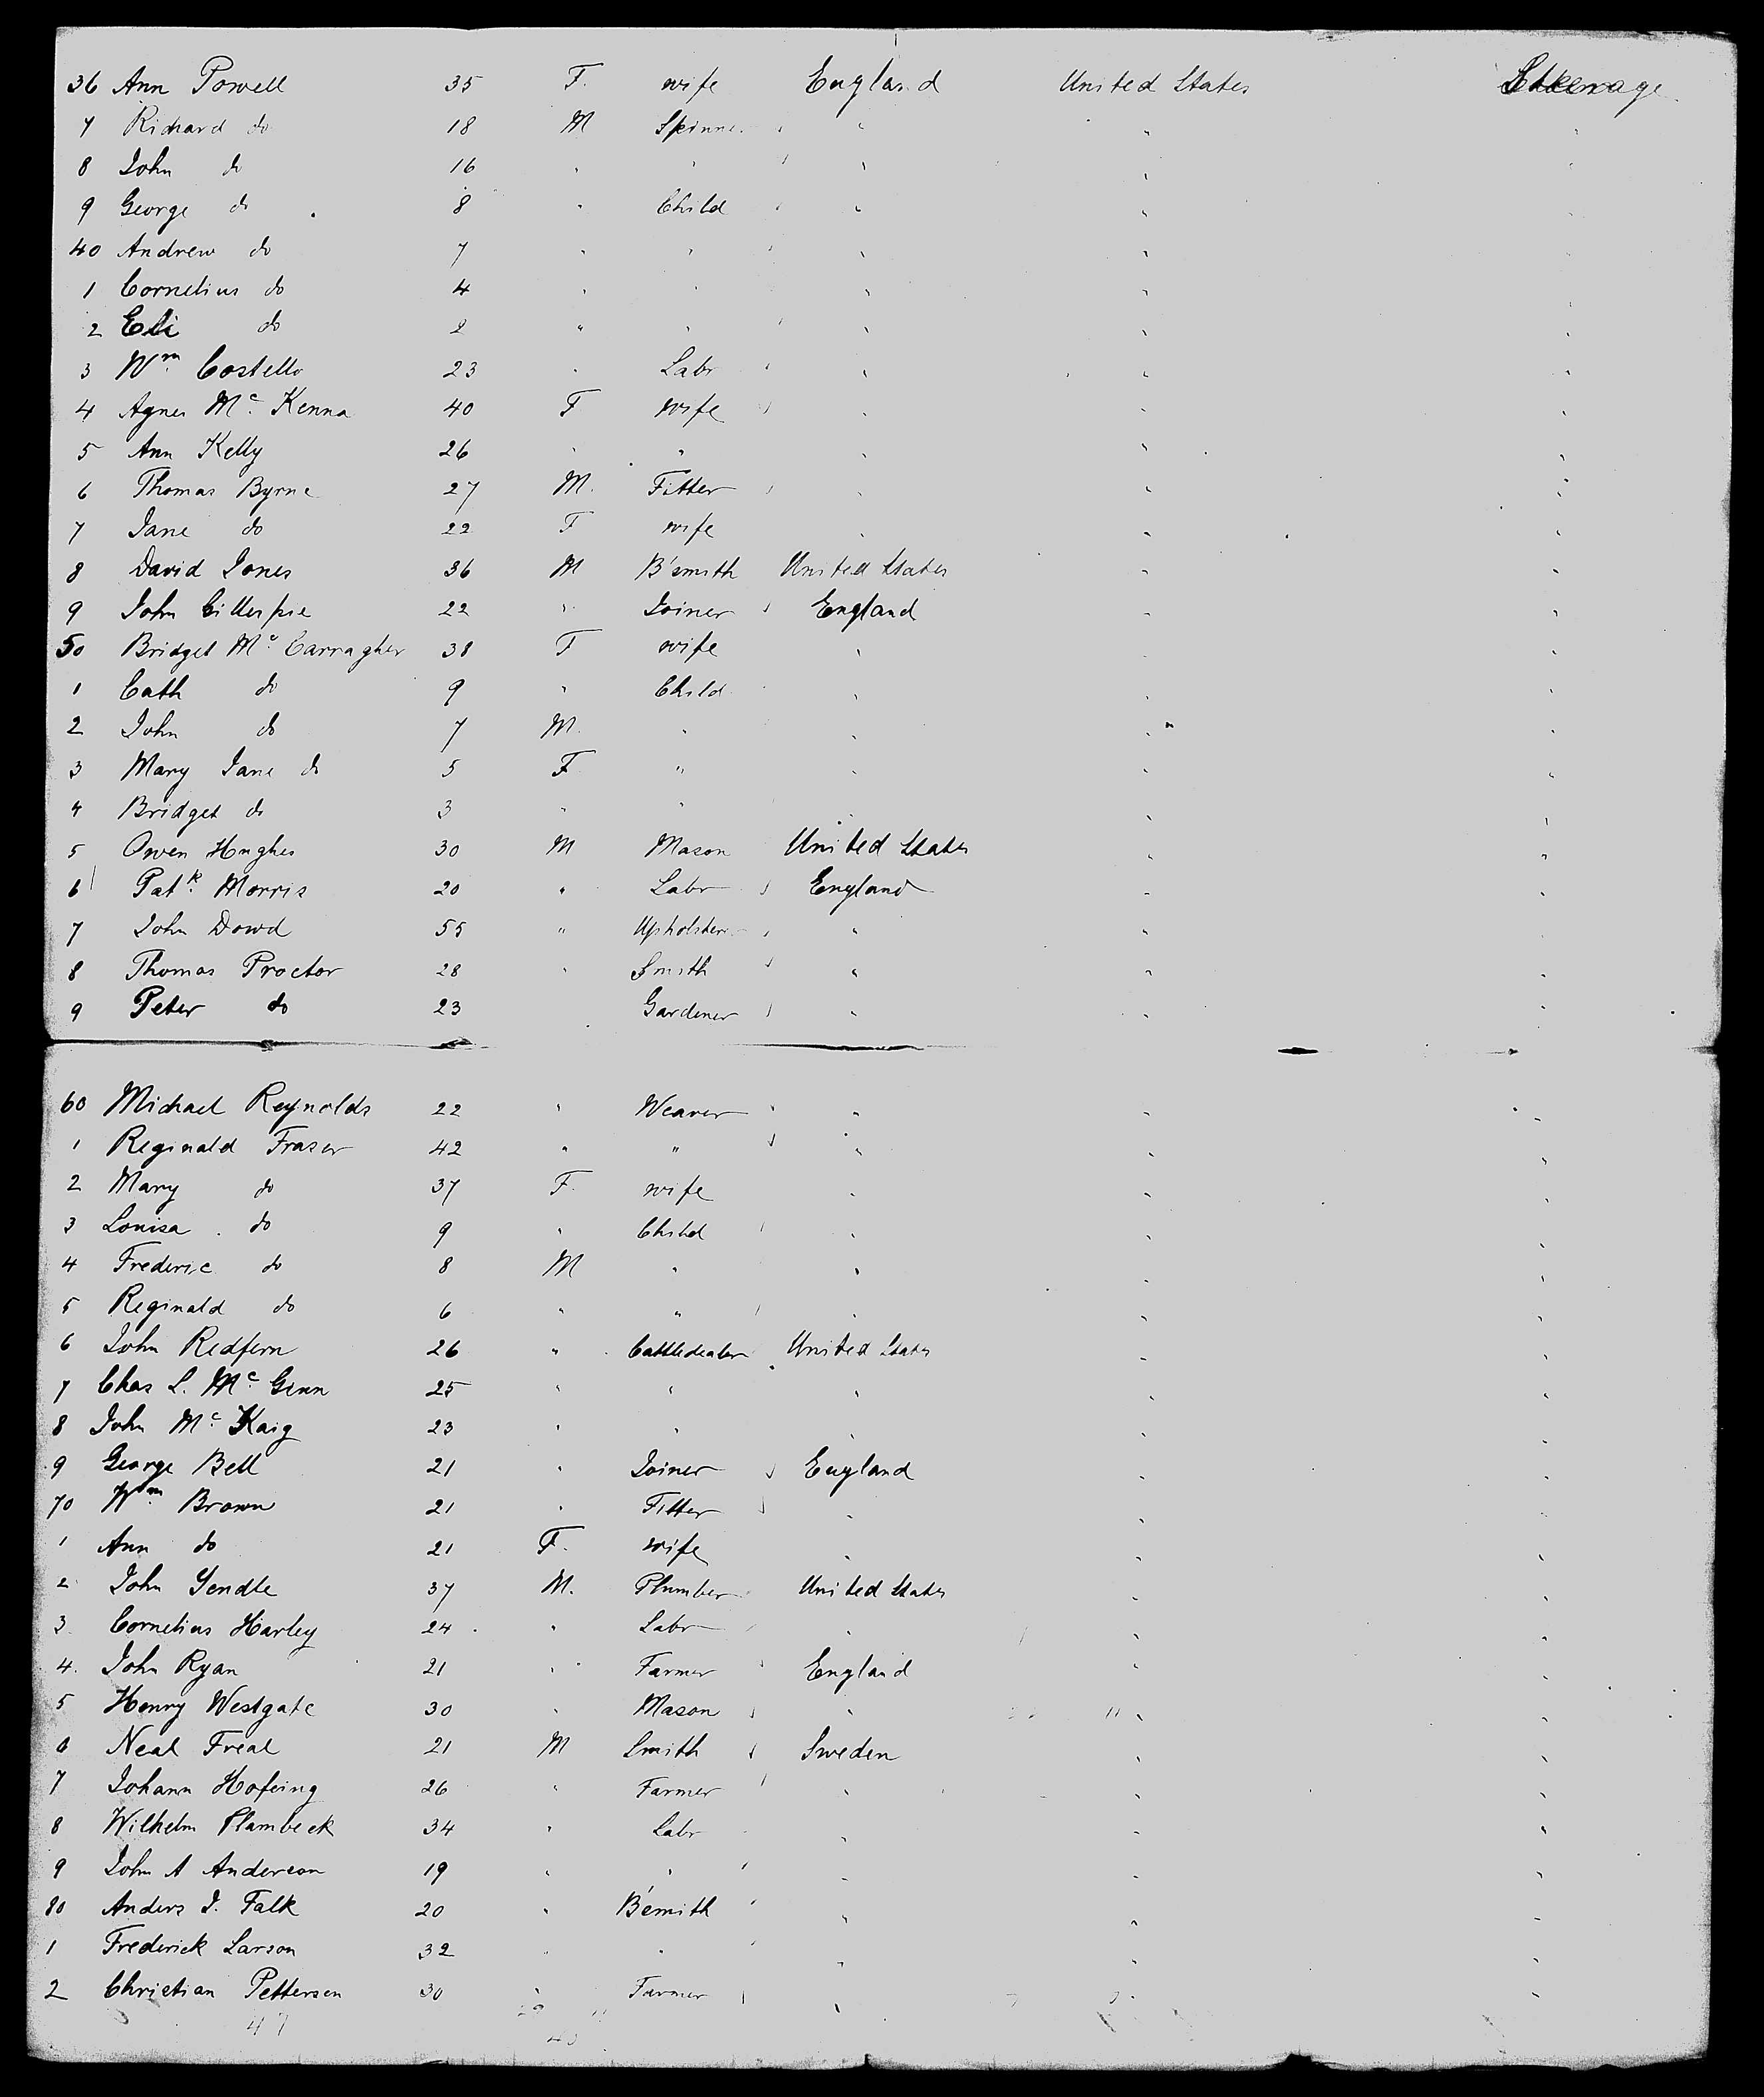 36 Ann Powell 35 F. wife England United States Steerage
7 Richard do 18 M Spinner " " "
8 John do 16 " " " " "
9 George do 8 " Child " " "
40 Andrew do 7 " " " "
1 Cornelius do 4 " " " "
2 Eli do 2 " " " " "
3 Wm Costello 23 " Labr " " "
4 Agnes Mc Kenna 40 F wife " " "
5 Ann Kelly 26 " " " " "
6 Thomas Byrne 27 M. Fitter " " "
7 Jane do 22 F wife " " "
8 David Jones 36 M B'smith United States " "
9 John Gillespie 22 " Joiner England " "
50 Bridget Mc Carragher 38 F wife " " "
1 Cath do 9 " Child " " "
2 John do 7 M. " " " "
3 Mary Jane do 5 F " " " "
4 Bridget do 3 " " " " "
5 Owen Hughes 30 M Mason United States " "
6 Patk Morris 20 " Labr England " "
7 John Dowd 55 " Upholsterer " " "
8 Thomas Proctor 28 " Smith " " "
9 Peter do 23 Gardener " " "
60 Michael Reynolds 22 " Weaver " " "
1 Reginald Fraser 42 " " " " "
2 Mary do 37 F. wife " " "
3 Louisa do 9 " Child " " "
4 Frederic do 8 M " " " "
5 Reginald do 6 " " " " "
6 John Redfern 26 " Cattledealer United States " "
7 Chas L. Mc Ginn 25 " " " " "
8 John Mc Kaig 23 " " " " "
9 George Bell 21 " Joiner England " "
70 Wm Brown 21 " Fitter " " "
1 Ann do 21 F. wife " " "
2 John Yendle 37 M. Plumber United States " "
3 Cornelius Harley 24 " Labr " " "
4. John Ryan 21 " Farmer England " "
5 Henry Westgate 30 " Mason " " "
6 Neal Freal 21 M Smith Sweden " "
7 Johann Hofeing 26 " Farmer " " "
8 Wilhelm Plambeck 34 " Labr " " "
9 John A Anderson 19 " " " " "
80 Anders J. Falk 20 " B'smith " " "
1 Frederick Larson 32 " " " " "
2 Christian Pettersen 30 " Farmer " " "
47